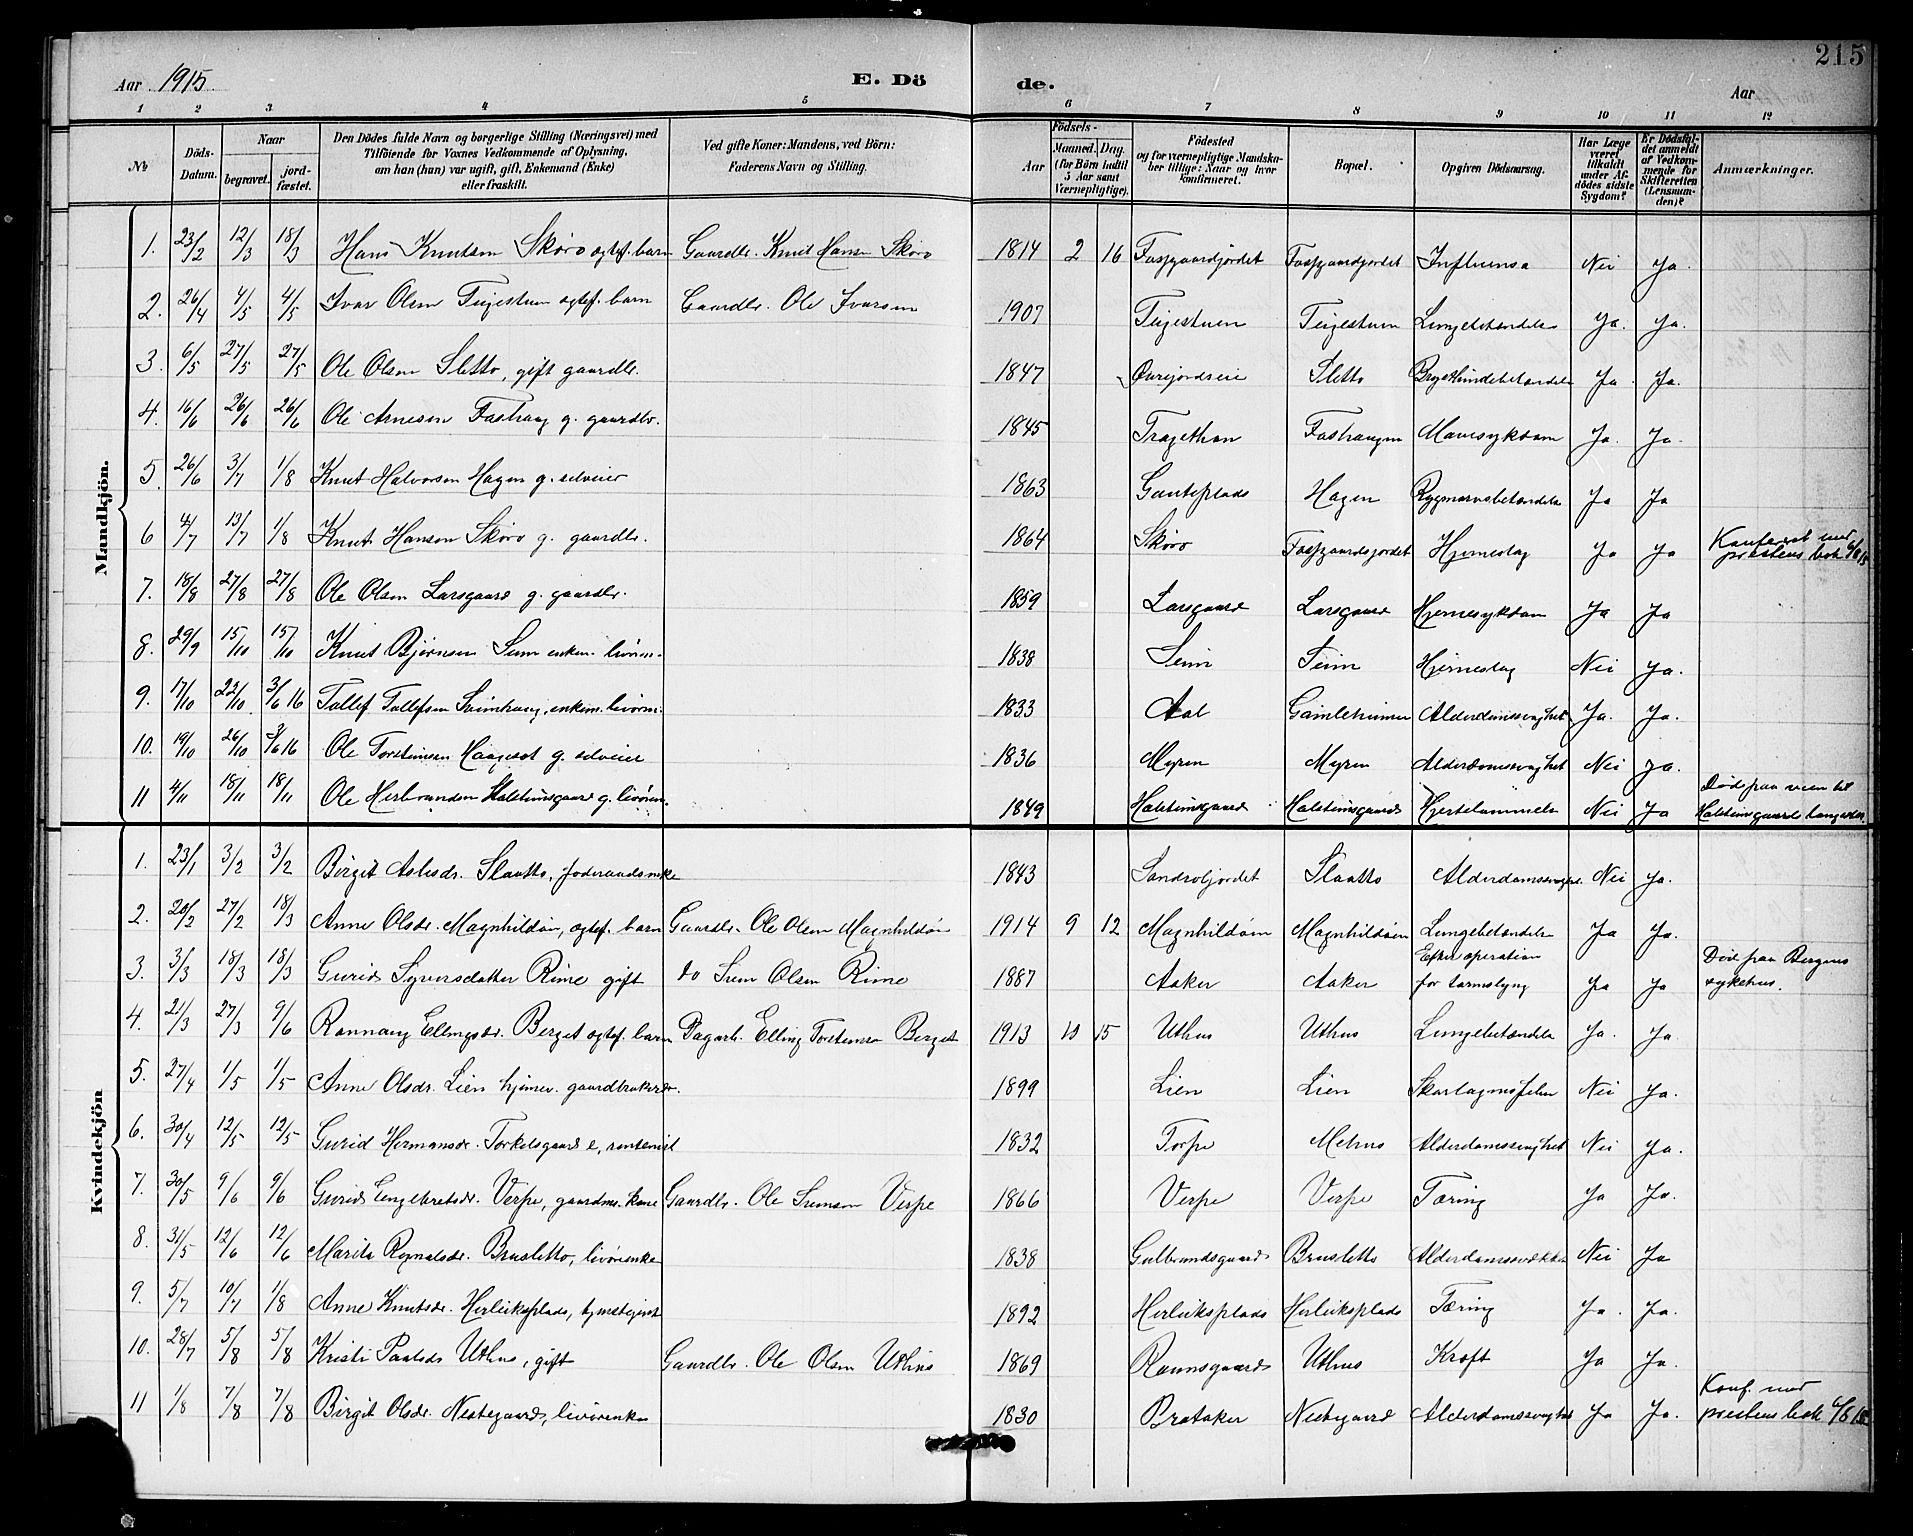 215
Aar 1915. E. Dö de. Aar
1 2 3 4 5 6 7 8 9 10 11 12
№ Döds-Datum. Naar begravet. jord-fæstet. Den Dödes fulde Navn og borgerlige Stilling (Næringsvei) med Tilföiende for Voxnes Vedkommende af Oplysning, om han (hun) var ugift, gift, Enkemand (Enke) eller fraskilt. Ved gifte Koner: Mandens, ved Börn: Faderens Navn og Stilling. Födsels- Aar Maaned. Dag. (for Börn indtil 5 Aar samt Værnepligtige). Födested og for værnepligtige Mandskaber tillige: Naar og hvor konfirmeret. Bopæl. Opgiven Dödsaarsag. Har Læge været tilkaldt under Afdödes sidste Sygdom? Er Dödsfaldet anmeldt af Vedkommende for Skifteretten (Lensmanden)? Anmærkninger.
Mandkjön.
1. 23/2 12/3 18/3 Hans Knutsen Skøro ogtef. barn Gaardbr. Knut Hansen Skøro 1814 2 16 Fosgaardjordet Fosgaardjordet Influensa Nei Ja.
2. 26/4 4/5 4/5 Ivar Olsen Teigestuen ogtef. barn Gaardbr. Ole Ivarsen 1907 Teigestuen Teigestuen Lungebetændelse Ja. Ja.
3. 6/5 27/5 27/5 Ole Olsen Sletto, gift gaardbr. 1847 Øvrejordseie Sletto Brysthindebetændelse Ja. Ja.
4. 16/6 26/6 26/6 Ole Arnesen Foshaug g. gaardbr. 1845 Tragethon Foshaugen Mavesykdom Ja. Ja.
5. 26/6 3/7 1/8 Knut Halvorsen Hagen g. selveier 1863 Gauteplads Hagen Rygmarvsbetændelse Ja Ja
6 4/7 13/7 1/8 Knut Hansen Skøro g. gaardbr. 1864 Skøro Fosgaardsjordet Hjerneslag Ja Ja Konferert med prestens bok 6/8 15
7. 18/8 27/8 27/8 Ole Olsen Larsgaard g. gaardbr. 1859 Larsgaard Larsgaard Hjernesykdom Ja Ja
8. 29/9 15/10 15/10 Knut Bjørnsen Seim enkem. livøren. 1838 Seim Seim Hjerneslag Nei Ja.
9. 17/10 22/10 3/6 16 Tollef Tollefsen Svimhaug, enkem. livøren. 1833 Aal Gamleheimen Alderdomssvaghet Ja. Ja.
10. 19/10 26/10 3/6 16 Ole Torsteinsen Haugset g. selveier 1836 Myren Myren Alderdomssvaghet Nei Ja.
11 4/11 18/11 18/11 Ole Herbrandsen Halsteinsgaard g. livøren. 1849 Halsteinsgaard Halsteinsgaard Hjertelammelse Nei Ja Død paa veien til Halsteinsgaard
Kvindekjön
1. 23/1 3/2 3/2 Birgit Aslesdr. Slaatto, føderaadsenke 1843 Sandroljordet Slaatto Alderdomssvaghet. Nei Ja.
2. 20/2 27/2 18/3 Anne Olsdr. Magnhildøin, ogtef. barn Gaardbr. Ole Olsen Magnhildøin 1914 9 12 Magnhildøin Magnhildøin Lungebetændelse Ja Ja.
3. 3/3 18/3 18/3 Gurid Syversdatter Rime gift do Svein Olsen Rime 1887 Aaker Aaker Efter operation for tarmslyng Ja Ja Død paa Bergens sykehus.
4. 21/3 27/3 9/6 Rannaug Ellingsdr. Berget ogtef. barn Dagarb. Elling Torsteinsen Berget 1913 10 15 Uthus Uthus Lungebetændelse Ja. Ja.
5. 27/4 1/5 1/5 Anne Olsdr. Lien hjemev. gaardbrukerdr. 1899 Lien Lien Skarlagensfeber Nei Ja.
6. 30/4 12/5 12/5 Gurid Hermansdr. Torkelsgaard e, rentenist 1832 Torpe Mehus Alderdomssvaghet Nei Ja.
7. 30/5 9/6 9/6 Gurid Engebretsdr. Verpe, gaardm. kone Gaardbr. Ole Sveinsen Verpe 1866 Verpe Verpe Tæring Ja Ja.
8. 31/5 12/6 12/6 Marita Reynalsdr. Brusletto, livørenke 1838 Gulbrandsgaard Brusletto Alderdomssvækkelse Nei Ja
9. 5/7 10/7 1/8 Anne Knutsdr. Herleiksplads, tjenestejente 1892 Herleiksplads Herleiksplads Tæring Ja. Ja.
10. 28/7 5/8 5/8 Kristi Paalsdr Uthus, gift Gaardbr. Ole Olsen Uthus 1869 Raunsgaard Uthus Kræft Ja Ja.
11 1/8 7/8 7/8 Birgit Olsdr. Nestegaard, livørenke 1830 Brataker Nestegaard Alderdomssvaghet Ja Ja. Konf. med prestens bok 6/8 15